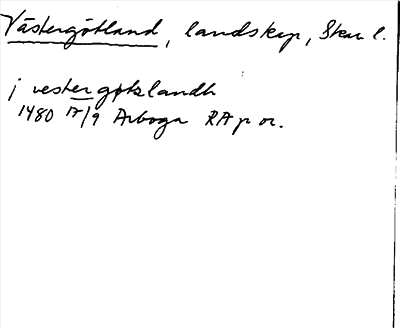 Västergötland, landskap, Skar l.
j vestergøtzlandh
1480 17/9 Arboga RAp or.